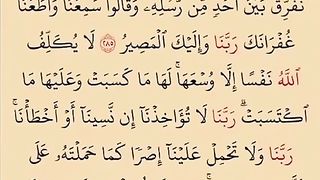 نُفَرِّقُ بَيْنَ أَحَدٍ مِّن رُّسُلِهِۦ وَقَالُوا۟ سَمِعْنَا وَأَطَعْنَا
غُفْرَانَكَ رَبَّنَا وَإِلَيْكَ ٱلْمَصِيرُ ٢٨٥ لَا يُكَلِّفُ
ٱللَّهُ نَفْسًا إِلَّا وُسْعَهَا ۚ لَهَا مَا كَسَبَتْ وَعَلَيْهَا مَا
ٱكْتَسَبَتْ ۗ رَبَّنَا لَا تُؤَاخِذْنَآ إِن نَّسِينَآ أَوْ أَخْطَأْنَا ۚ
رَبَّنَا وَلَا تَحْمِلْ عَلَيْنَآ إِصْرًا كَمَا حَمَلْتَهُۥ عَلَى